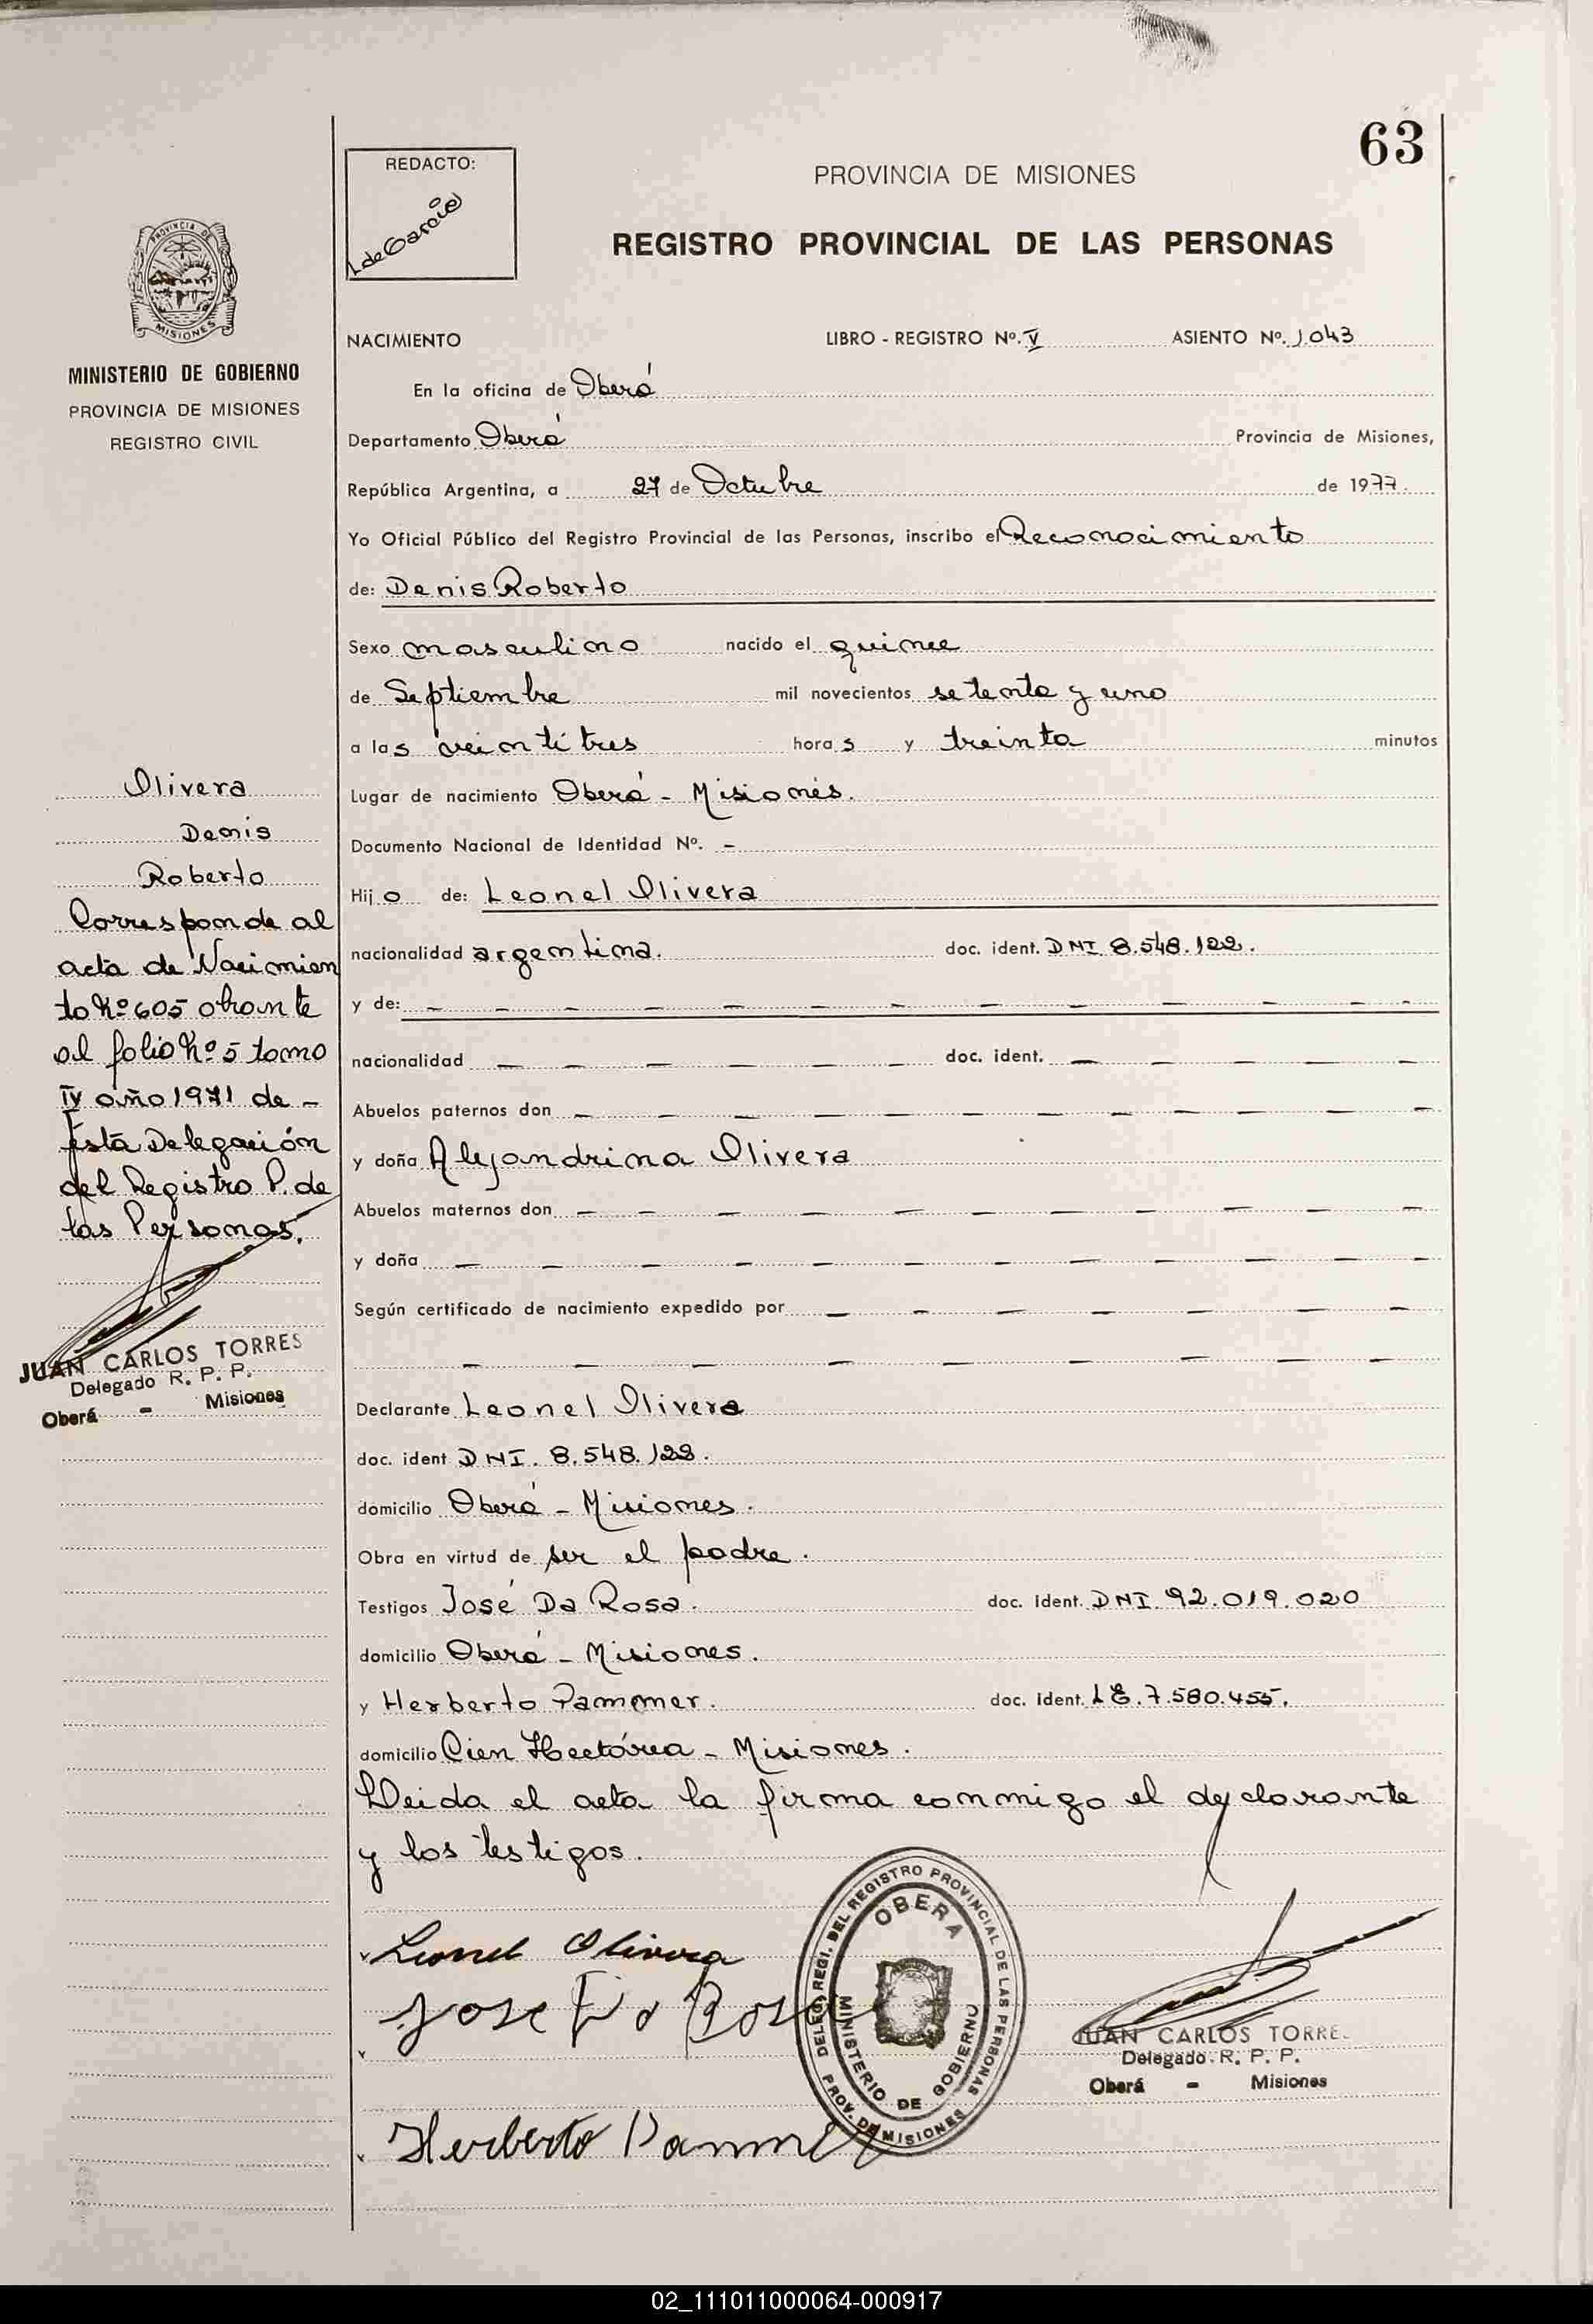 63
REDACTO:
L de Garcia
PROVINCIA DE MISIONES
REGISTRO PROVINCIAL DE LAS PERSONAS
PROVINCIA DE
MISIONES
MINISTERIO DE GOBIERNO
PROVINCIA DE MISIONES
REGISTRO CIVIL
NACIMIENTO LIBRO - REGISTRO Nº. V ASIENTO Nº. 1.043
En la oficina de Oberá
Departamento Oberá Provincia de Misiones,
República Argentina, a 27 de Octubre de 1977.
Yo Oficial Público del Registro Provincial de las Personas, inscribo el Reconocimiento
de: Denis Roberto
Sexo masculino nacido el quince
de Septiembre mil novecientos setenta y uno
a las veintitres horas y treinta minutos
Lugar de nacimiento Oberá - Misiones.
Documento Nacional de Identidad Nº. -
Hijo de: Leonel Olivera
nacionalidad argentina. doc. ident. DNI. 8.548.122.
y de: - - - - - - - - - - - -
nacionalidad - - - - - - doc. ident. - - - - -
Abuelos paternos don - - - - - - - - - -
y doña Alejandrina Olivera
Abuelos maternos don - - - - - - - - - -
y doña - - - - - - - - - - - -
Según certificado de nacimiento expedido por - - - - - - -
- - - - - - - - - - -
Declarante Leonel Olivera
doc. ident DNI. 8.548.122.
domicilio Oberá - Misiones.
Obra en virtud de ser el padre.
Testigos José Da Rosa. doc. ident. DNI. 92.019.020
domicilio Oberá - Misiones.
y Herberto Pammer. doc. ident. LE. 7.580.455.
domicilio Cien Hectárea - Misiones.
Leida el acta la firma conmigo el declarante
y los testigos.
Olivera
Denis
Roberto
Corresponde al
acta de Nacimien
to Nº 605 obrante
al folio Nº 5 tomo
IV año 1971 de -
ésta Delegación
del Registro P. de
las Personas.
JUAN CARLOS TORRES
Delegado R. P. P.
Oberá - Misiones
Leonel Olivera
Jose Da Rosa
Herberto Pammer
DELEG. REGI. DEL REGISTRO PROVINCIAL DE LAS PERSONAS
PROV. DE MISIONES
OBERA
MINISTERIO DE GOBIERNO
JUAN CARLOS TORRE
Delegado R. P. P.
Oberá - Misiones
02_111011000064-000917